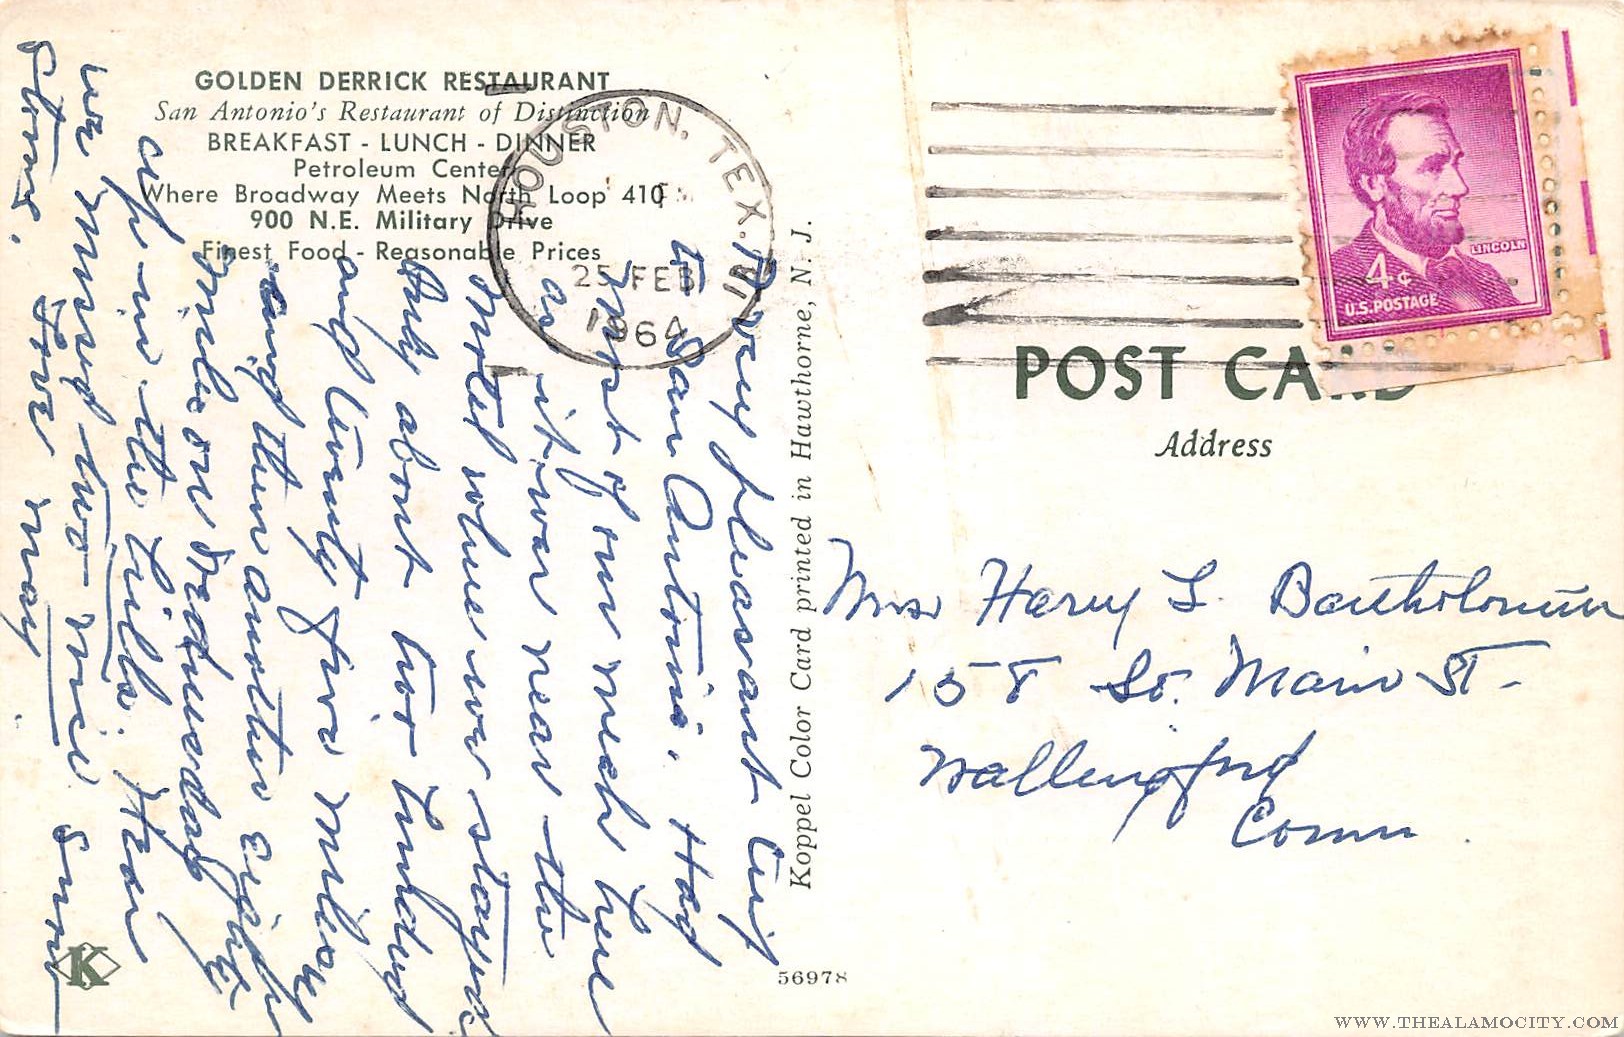 GOLDEN DERRICK RESTAURANT
San Antonio's Restaurant of Distinction
BREAKFAST - LUNCH - DINNER
Petroleum Center
Where Broadway Meets North Loop 410
900 N.E. Military Drive
Finest Food - Reasonable Prices
A very pleasant trip
to San Antonio. Had
most of our meals here
as it was near the
motel where we stayed.
Only about two hundred
and twenty five miles
and then another eighty
miles on Wednesday
up in the hills. Hear
we missed two nice snow
storms. Love may.
Koppel Color Card printed in Hawthorne, N. J.
56978
K
HOUSTON, TEX.
25 FEB
1964
LINCOLN
4¢
U.S. POSTAGE
POST CARD
Address
Mrs Harry L. Bartholomew
158 So. Main St.
Wallingford
Conn.
WWW.THEALAMOCITY.COM